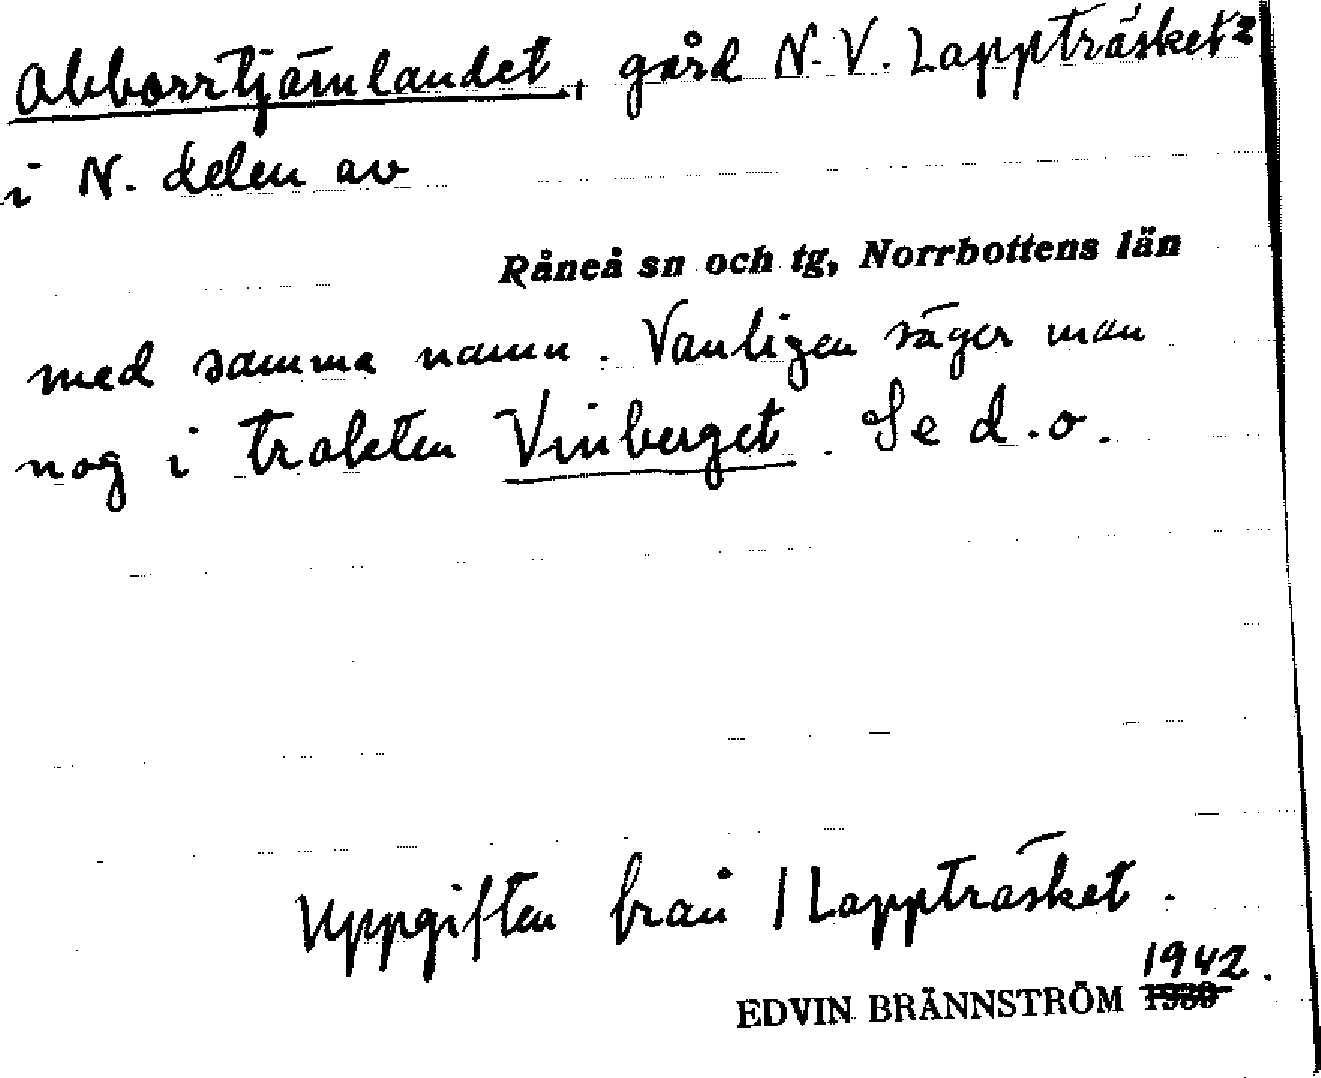 Abborrtjärnlandet, gård N.V. Lappträsket 2
i N. delen av
Råneå sn och tg, Norrbottens län
med samma namn. Vanligen säger man
nog i trakten Vinberget. Se d.o.
Uppgiften från 1 Lappträsket.
1942.
EDVIN BRÄNNSTRÖM 1930